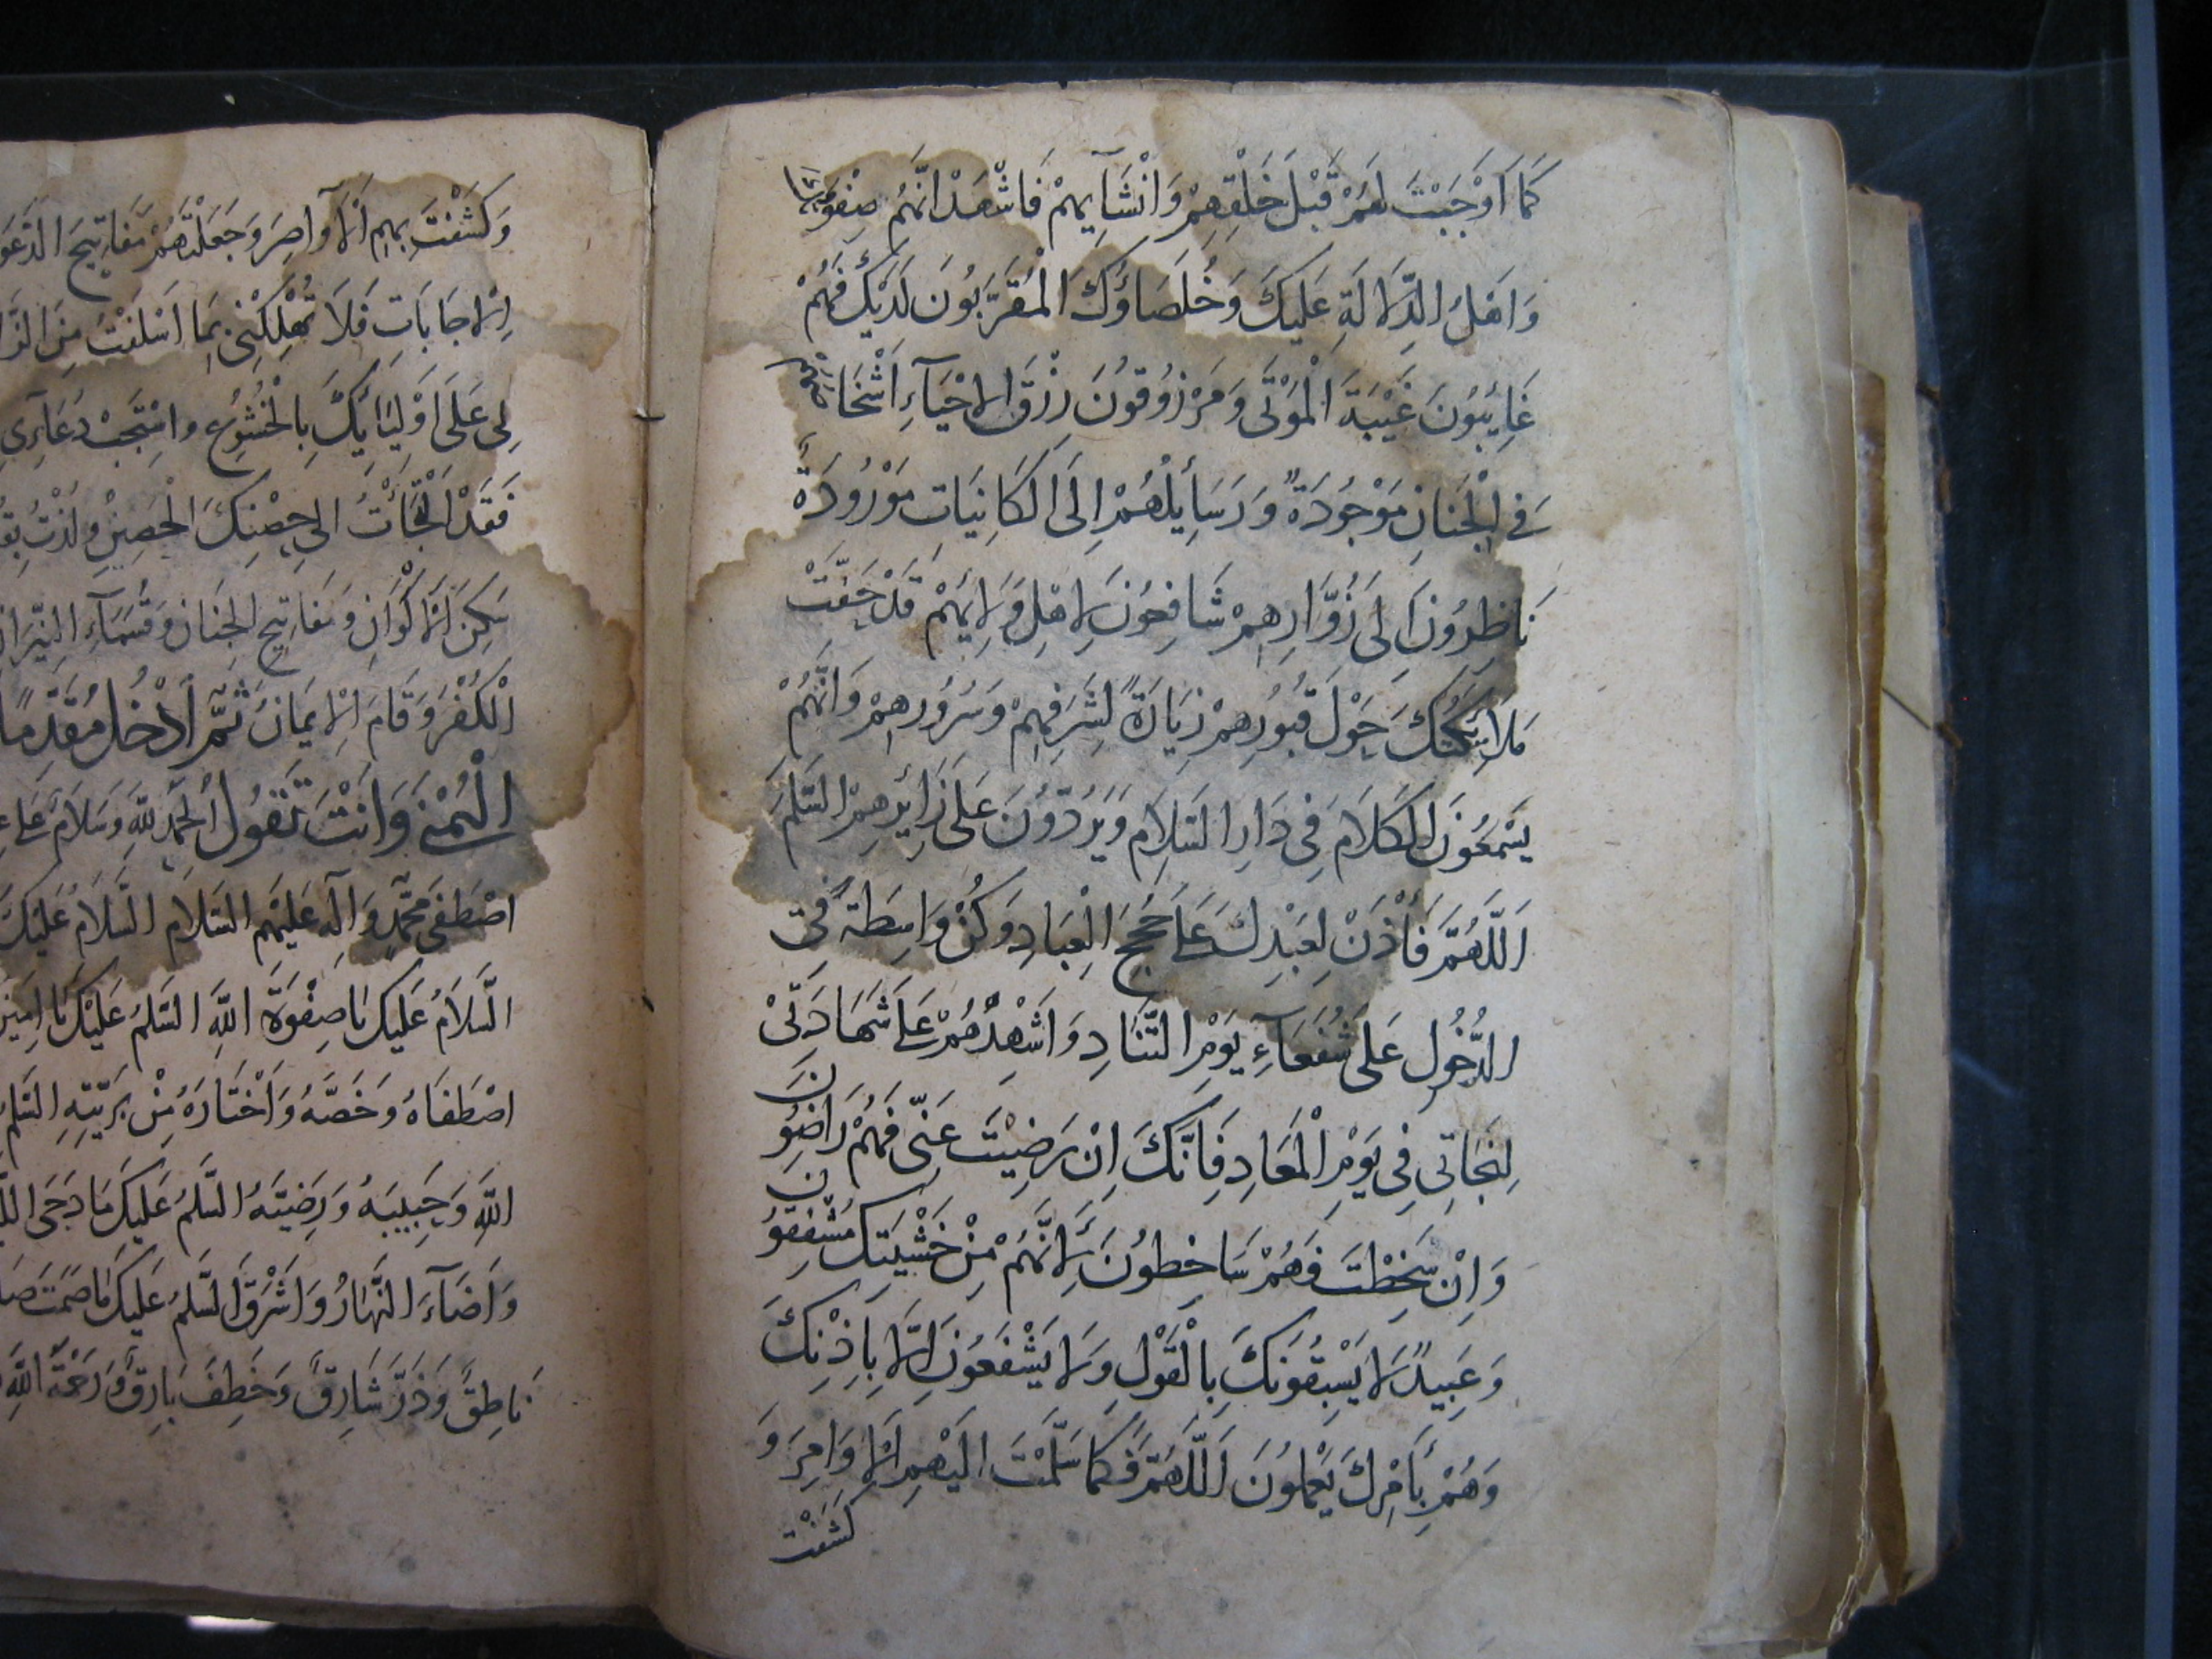 كَمَا اَوْجَبْتَ لَهُمْ قَبْلَ خَلْقِهِمْ وَاِنْشَآيِهِمْ فَاَشْهَدُ اَنَّهُمْ صِفْوَتُكَ
وَاَهْلُ الدِّلَالَةِ عَلَيْكَ وَخُلَصَاؤُكَ الْمُقَرَّبُونَ لَدَيْكَ فَهُمْ
غَايِبُونَ غَيْبَةَ الْمَوْتَى وَمَرْزُوقُونَ رِزْقَ الاَحْيَآءِ اَشْخَاصُهُمْ
فِي الْجِنَانِ مَوْجُودَةٌ وَرَسَايِلُهُمْ اِلَى الْكَايِنَاتِ مَوْرُودَةٌ
نَاظِرُونَ اِلَى زُوَّارِهِمْ شَافِعُونَ لِاَهْلِ وَلَايَتِهِمْ قَدْ حَفَّتْ
مَلَايِكَتُكَ حَوْلَ قُبُورِهِمْ زِيَارَةً لِشَرَفِهِمْ وَسُرُورِهِمْ وَاَنَّهُمْ
يَسْمَعُونَ الْكَلَامَ فِي دَارِ السَّلَامِ وَيَرُدُّونَ عَلَى زَايِرِهِمْ السَّلَمَ
اَللَّهُمَّ فَأْذَنْ لِعَبْدِكَ عَلَى حُجَجِ الْعِبَادِ وَكُنْ وَاسِطَةً فِي
الدُّخُولِ عَلَى شُفَعَآءِ يَوْمِ التَّنَادِ وَاَشْهِدْهُمْ عَلَى شَهَادَتِي
لِنَجَاتِي فِي يَوْمِ الْمَعَادِ فَاِنَّكَ اِنْ رَضِيْتَ عَنِّي فَهُمْ رَاضُونَ
وَاِنْ سَخِطْتَ فَهُمْ سَاخِطُونَ لِاَنَّهُمْ مِنْ خَشْيَتِكَ مُشْفِقُونَ
وَعَبِيدٌ لَا يَسْبِقُونَكَ بِالْقَوْلِ وَلَا يَشْفَعُونَ اِلَّا بِاِذْنِكَ
وَهُمْ بِاَمْرِكَ يَعْمَلُونَ اَللَّهُمَّ فَكَمَا سَلَّمْتَ اِلَيْهِمُ الاَوَامِرَ وَ
كَشَفْتَ
وَكَشَفْتَ بِهِمُ الاَوَاصِرَ وَجَعَلْتَهُمْ مَفَاتِيحَ
الاِجَابَاتِ فَلَا تُهْلِكْنِي بِمَا اَسْلَفْتُ مِنَ
لِي عَلَى اَوْلِيَايِكَ بِالْخُشُوعِ وَاسْتَجِبْ دُعَآيِي
فَقَدْ الْتَجَأْتُ اِلَى حِصْنِكَ الْحَصِيْنِ وَلُذْتُ
الاَكْوَانِ وَمَفَاتِيحِ الْجِنَانِ وَقُسَمَآءِ النِّيْرَانِ
الْكُفْرُ وَقَامَ الاِيمَانُ ثُمَّ ادْخُلْ مُقَدِّمًا
الْيُمْنَى وَاَنْتَ تَقُولُ الْحَمْدُ لِلّٰهِ وَسَلَامٌ عَلَى
اصْطَفَى مُحَمَّدٍ وَآلِهِ عَلَيْهِمُ السَّلَامُ السَّلَامُ عَلَيْكَ
السَّلَامُ عَلَيْكَ يَا صِفْوَةَ اللّٰهِ السَّلَمُ عَلَيْكَ يَا اَمِيْنَ
اصْطَفَاهُ وَخَصَّهُ وَاخْتَارَهُ مِنْ بَرِيَّتِهِ السَّلَمُ
اللّٰهِ وَحَبِيبَهُ وَرَضِيَّهُ السَّلَمُ عَلَيْكَ مَا دَجَى
وَاَضَآءَ النَّهَارُ وَاَشْرَقَ السَّلَمُ عَلَيْكَ مَا صَمَتَ
نَاطِقٌ وَذَرَّ شَارِقٌ وَخَطِفَ بَارِقٌ وَرَحْمَةُ اللّٰهِ